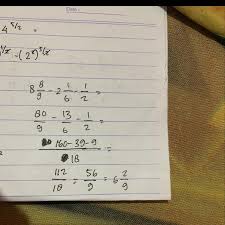 4^{5/2} =
^{1/x} - (2^9)^{3/x}
8 8/9 - 2 1/6 - 1/2 =
80/9 - 13/6 - 1/2 =
160-39-9/18 =
112/18 = 56/9 = 6 2/9